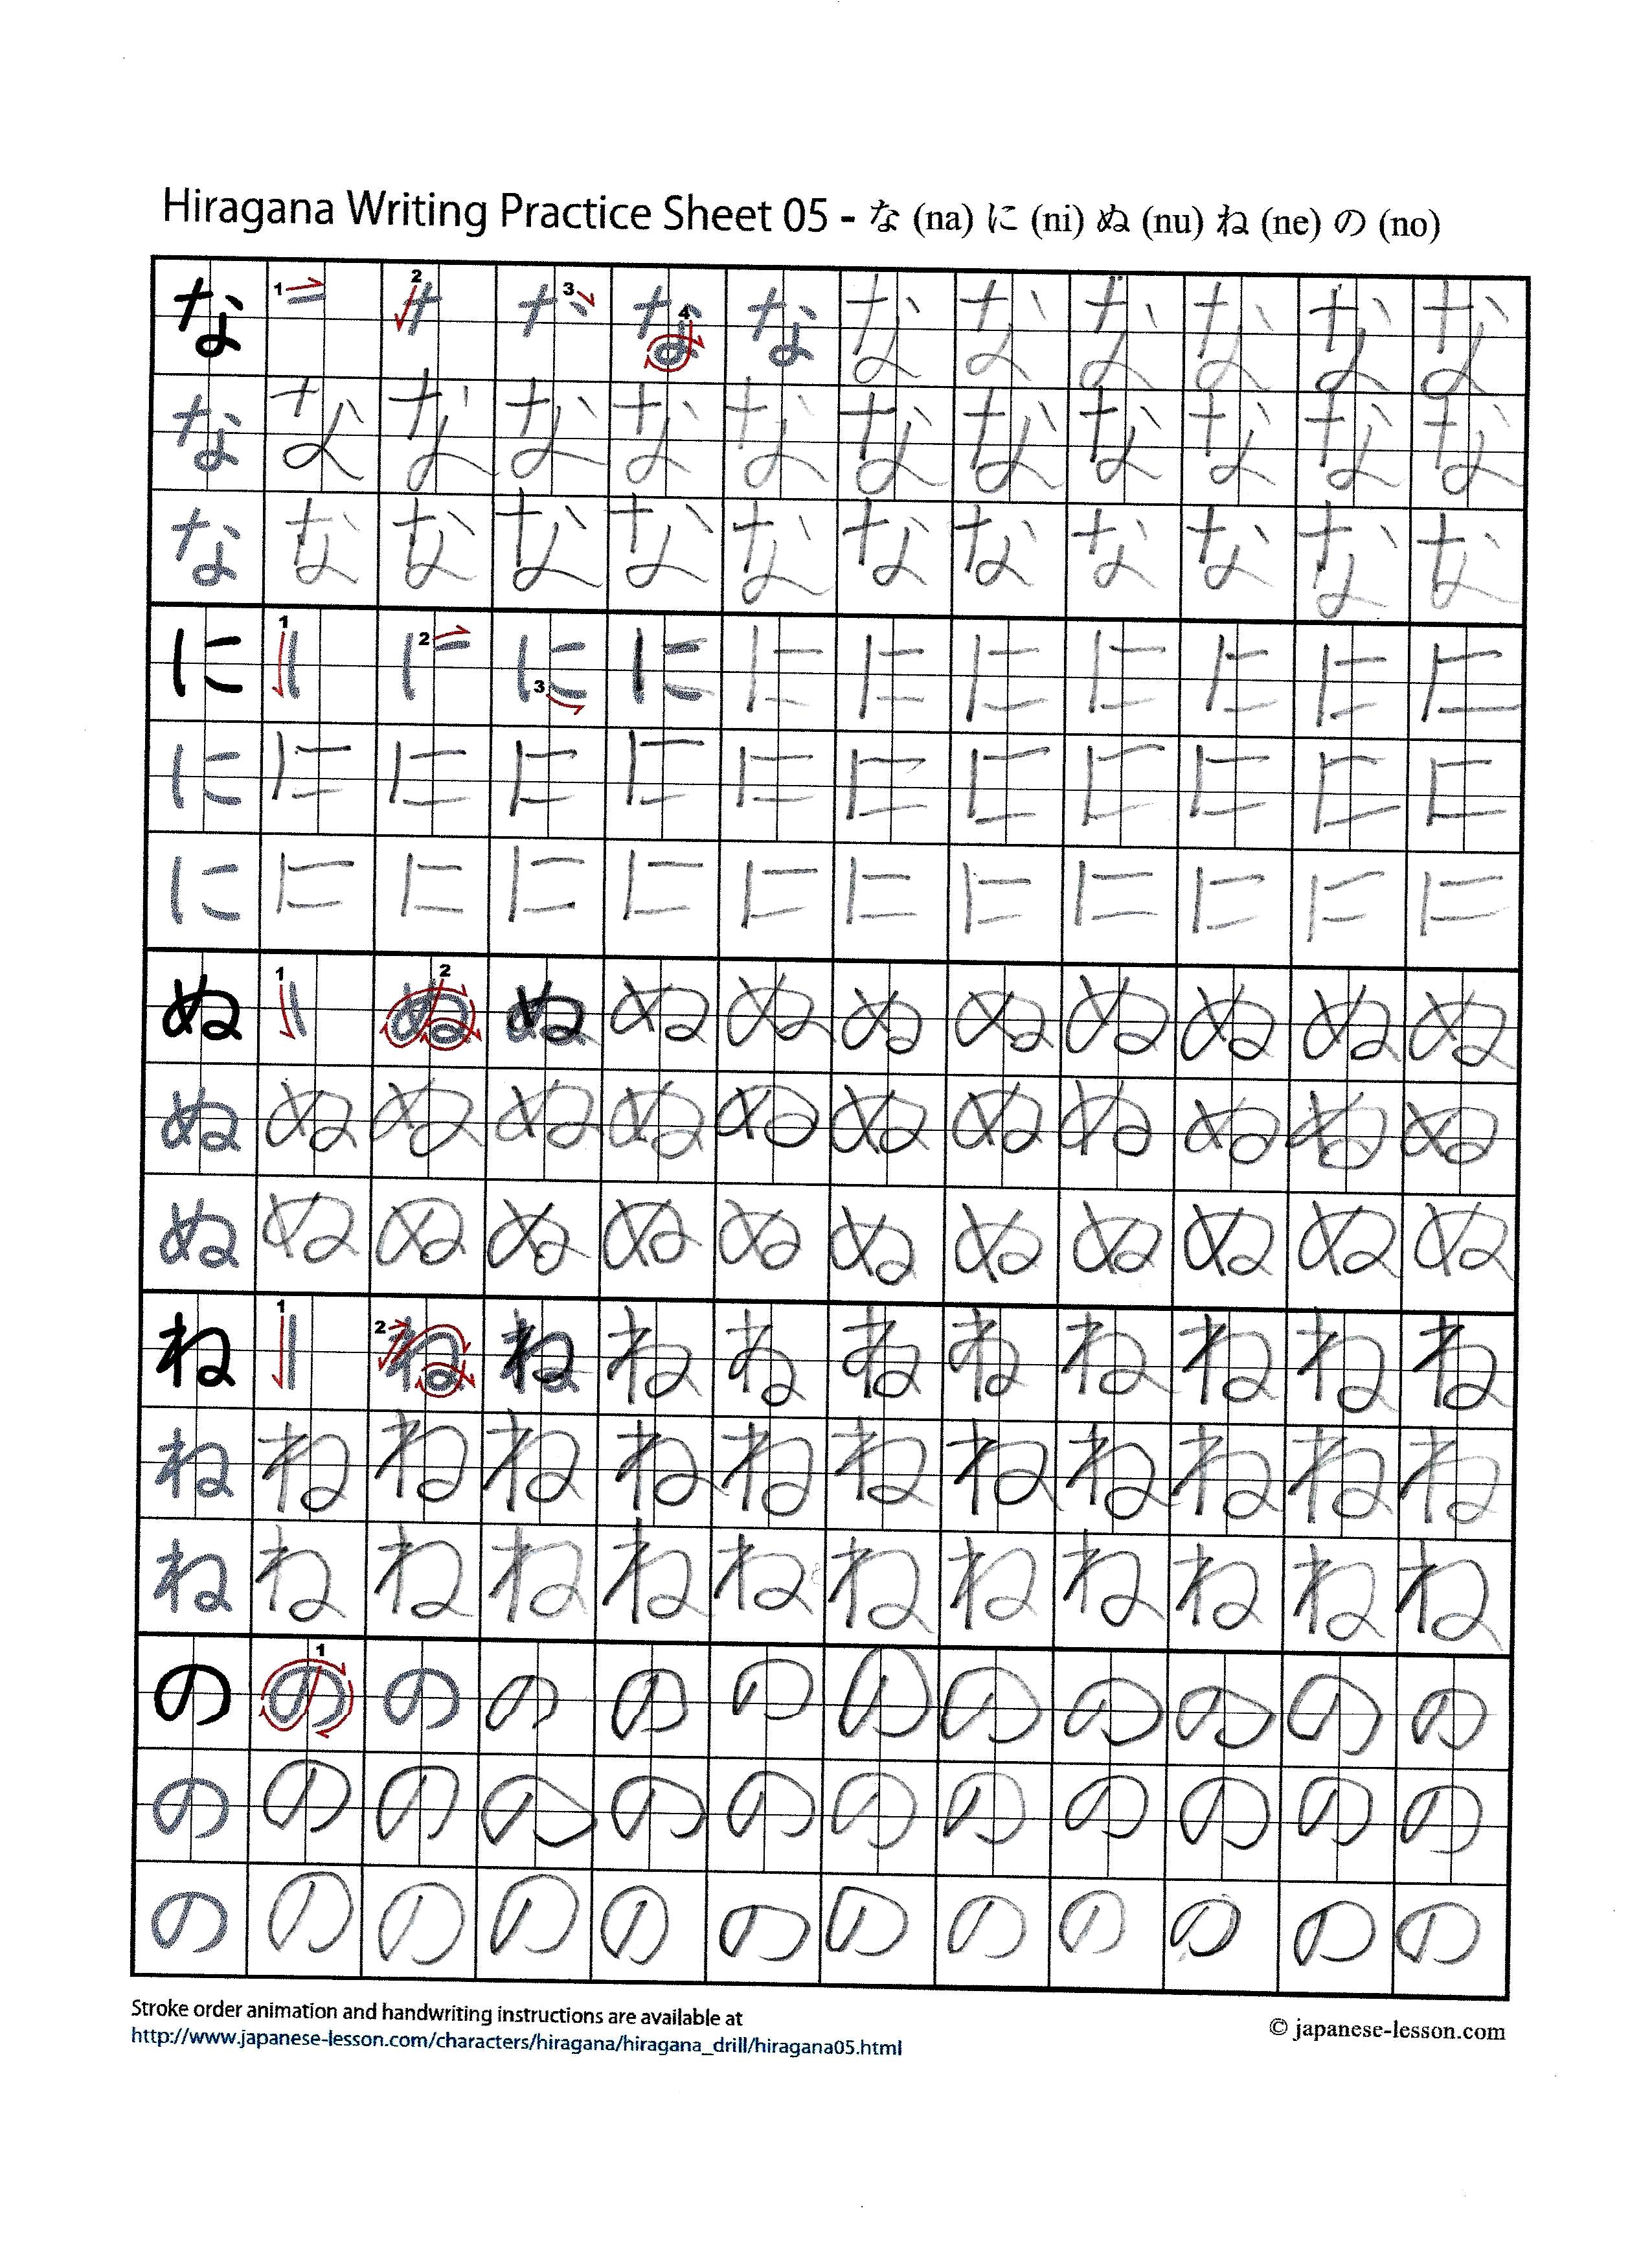 Hiragana Writing Practice Sheet 05 - な (na) に (ni) ぬ (nu) ね (ne) の (no)
な 1 2 3 4 な な な な な な な
な な な な な な な な な な な な
な な な な な な な な な な な な
に 1 2 3 に に に に に に に に
に に に に に に に に に に に に
に に に に に に に に に に に に
ぬ 1 2 ぬ ぬ ぬ ぬ ぬ ぬ ぬ ぬ ぬ
ぬ ぬ ぬ ぬ ぬ ぬ ぬ ぬ ぬ ぬ ぬ ぬ
ぬ ぬ ぬ ぬ ぬ ぬ ぬ ぬ ぬ ぬ ぬ ぬ
ね 1 2 ね ね ね ね ね ね ね ね ね
ね ね ね ね ね ね ね ね ね ね ね ね
ね ね ね ね ね ね ね ね ね ね ね ね
の 1 の の の の の の の の の の
の の の の の の の の の の の の
の の の の の の の の の の の の
Stroke order animation and handwriting instructions are available at
http://www.japanese-lesson.com/characters/hiragana/hiragana_drill/hiragana05.html
© japanese-lesson.com